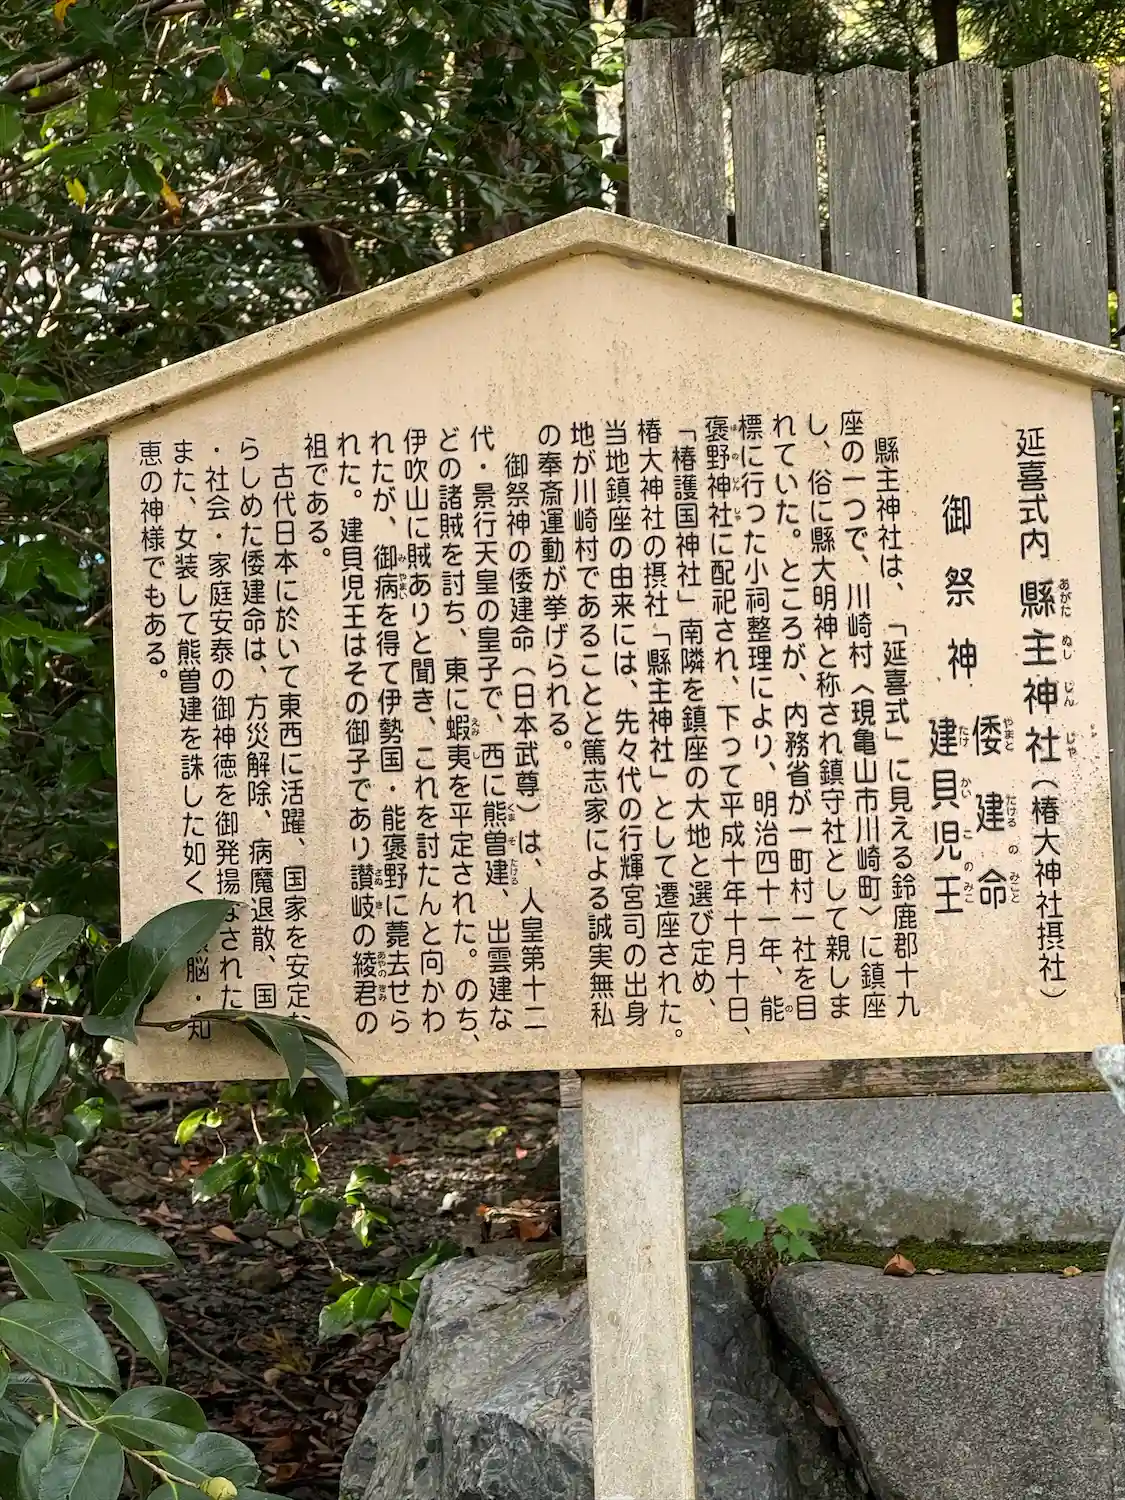 延喜式内 縣主神社（椿大神社摂社）
御祭神 倭建命
建貝児王
縣主神社は、「延喜式」に見える鈴鹿郡十九
座の一つで、川崎村〈現亀山市川崎町〉に鎮座
し、俗に縣大明神と称され鎮守社として親しま
れていた。ところが、内務省が一町村一社を目
標に行った小祠整理により、明治四十一年、能
褒野神社に配祀され、下って平成十年十月十日、
「椿護国神社」南隣を鎮座の大地と選び定め、
椿大神社の摂社「縣主神社」として遷座された。
当地鎮座の由来には、先々代の行輝宮司の出身
地が川崎村であることと篤志家による誠実無私
の奉斎運動が挙げられる。
御祭神の倭建命（日本武尊）は、人皇第十二
代・景行天皇の皇子で、西に熊曽建、出雲建な
どの諸賊を討ち、東に蝦夷を平定された。のち、
伊吹山に賊ありと聞き、これを討たんと向かわ
れたが、御病を得て伊勢国・能褒野に薨去せら
れた。建貝児王はその御子であり讃岐の綾君の
祖である。
古代日本に於いて東西に活躍、国家を安定
らしめた倭建命は、方災解除、病魔退散、国
・社会・家庭安泰の御神徳を御発揚なされた
また、女装して熊曽建を誅した如く 脳・知
恵の神様でもある。